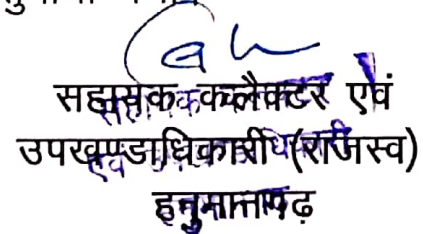 सहायक कलैक्टर एवं
उपखण्डाधिकारी (राजस्व)
हनुमानगढ़